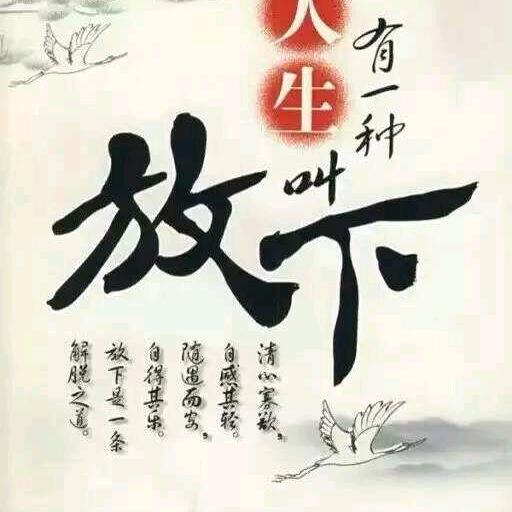 人生
有一种
叫
放下
清心寡欲，
自感其轻。
随遇而安，
自得其乐。
放下是一条
解脱之道。